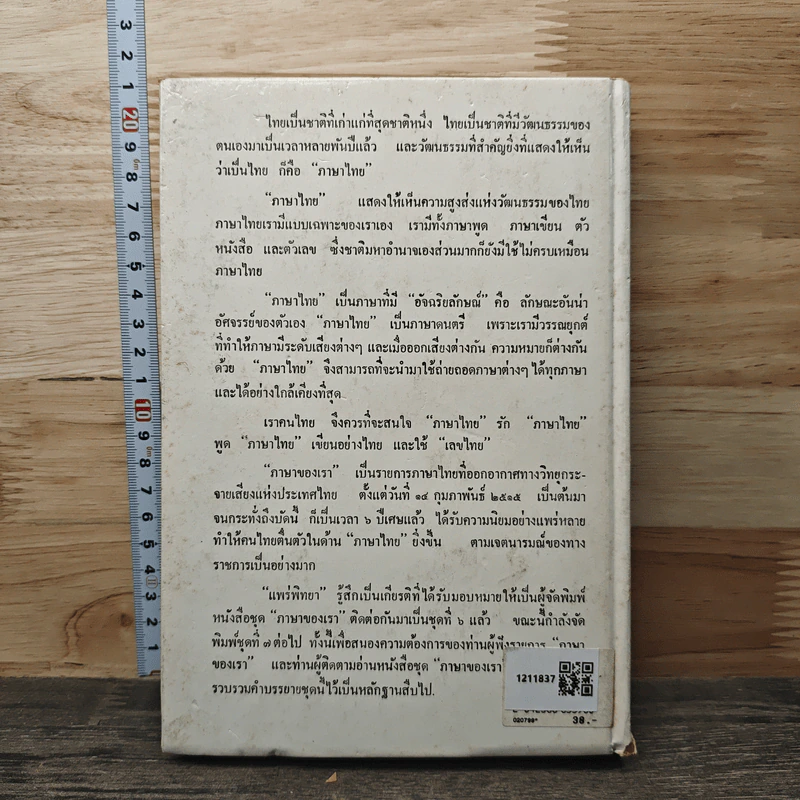 ไทยเป็นชาติที่เก่าแก่ที่สุดชาติหนึ่ง ไทยเป็นชาติที่มีวัฒนธรรมของ
ตนเองมาเป็นเวลาหลายพันปีแล้ว และวัฒนธรรมที่สำคัญยิ่งที่แสดงให้เห็น
ว่าเป็นไทย ก็คือ “ภาษาไทย”
“ภาษาไทย” แสดงให้เห็นความสูงส่งแห่งวัฒนธรรมของไทย
ภาษาไทยเรามีแบบเฉพาะของเราเอง เรามีทั้งภาษาพูด ภาษาเขียน ตัว
หนังสือ และตัวเลข ซึ่งชาติมหาอำนาจเองส่วนมากก็ยังมีใช้ไม่ครบเหมือน
ภาษาไทย
“ภาษาไทย” เป็นภาษาที่มี “อัจฉริยลักษณ์” คือ ลักษณะอันน่า
อัศจรรย์ของตัวเอง “ภาษาไทย” เป็นภาษาดนตรี เพราะเรามีวรรณยุกต์
ที่ทำให้ภาษามีระดับเสียงต่างๆ และเมื่อออกเสียงต่างกัน ความหมายก็ต่างกัน
ด้วย “ภาษาไทย” จึงสามารถที่จะนำมาใช้ถ่ายถอดภาษาต่างๆ ได้ทุกภาษา
และได้อย่างใกล้เคียงที่สุด
เราคนไทย จึงควรที่จะสนใจ “ภาษาไทย” รัก “ภาษาไทย”
พูด “ภาษาไทย” เขียนอย่างไทย และใช้ “เลขไทย”
“ภาษาของเรา” เป็นรายการภาษาไทยที่ออกอากาศทางวิทยุกระ-
จายเสียงแห่งประเทศไทย ตั้งแต่วันที่ ๑๔ กุมภาพันธ์ ๒๕๑๕ เป็นต้นมา
จนกระทั่งถึงบัดนี้ ก็เป็นเวลา ๖ ปีเศษแล้ว ได้รับความนิยมอย่างแพร่หลาย
ทำให้คนไทยตื่นตัวในด้าน “ภาษาไทย” ยิ่งขึ้น ตามเจตนารมณ์ของทาง
ราชการเป็นอย่างมาก
“แพร่พิทยา” รู้สึกเป็นเกียรติที่ได้รับมอบหมายให้เป็นผู้จัดพิมพ์
หนังสือชุด “ภาษาของเรา” ติดต่อกันมาเป็นชุดที่ ๖ แล้ว ขณะนี้กำลังจัด
พิมพ์ชุดที่ ๗ ต่อไป ทั้งนี้เพื่อสนองความต้องการของท่านผู้ฟังรายการ “ภาษา
ของเรา” และท่านผู้ติดตามอ่านหนังสือชุด “ภาษาของเรา
รวบรวมคำบรรยายชุดนี้ไว้เป็นหลักฐานสืบไป.
1211837
020799*
38.-
3 2 1 20 9 8 7 6 5 4 3 2 1 10 9 8 7 6 5 4 3 2 1